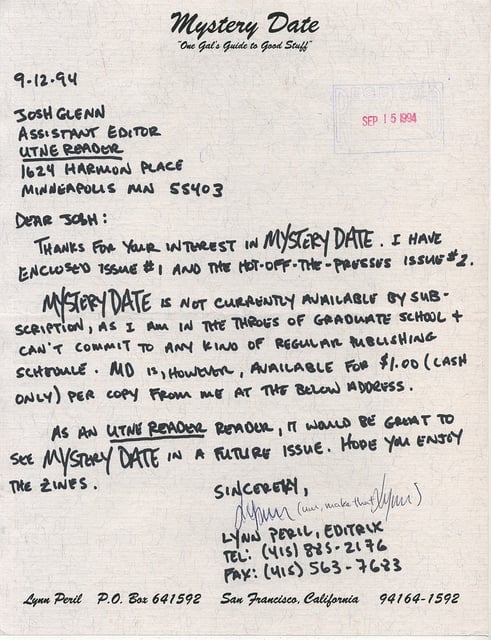 Mystery Date
"One Gal's Guide to Good Stuff"
9-12-94
JOSH GLENN
ASSISTANT EDITOR
UTNE READER
1624 HARMON PLACE
MINNEAPOLIS MN 55403
SEP 15 1994
DEAR JOSH:
THANKS FOR YOUR INTEREST IN MYSTERY DATE. I HAVE
ENCLOSED ISSUE #1 AND THE HOT-OFF-THE-PRESSES ISSUE #2.
MYSTERY DATE IS NOT CURRENTLY AVAILABLE BY SUB-
SCRIPTION, AS I AM IN THE THROES OF GRADUATE SCHOOL +
CAN'T COMMIT TO ANY KIND OF REGULAR PUBLISHING
SCHEDULE. MD IS, HOWEVER, AVAILABLE FOR $1.00 (CASH
ONLY) PER COPY FROM ME AT THE BELOW ADDRESS.
AS AN UTNE READER READER, IT WOULD BE GREAT TO
SEE MYSTERY DATE IN A FUTURE ISSUE. HOPE YOU ENJOY
THE ZINES.
SINCERELY,
Lynn (um, make that Lynn)
LYNN PERIL, EDITRIX
TEL: (415) 885-2176
FAX: (415) 563-7683
Lynn Peril P.O. Box 641592 San Francisco, California 94164-1592